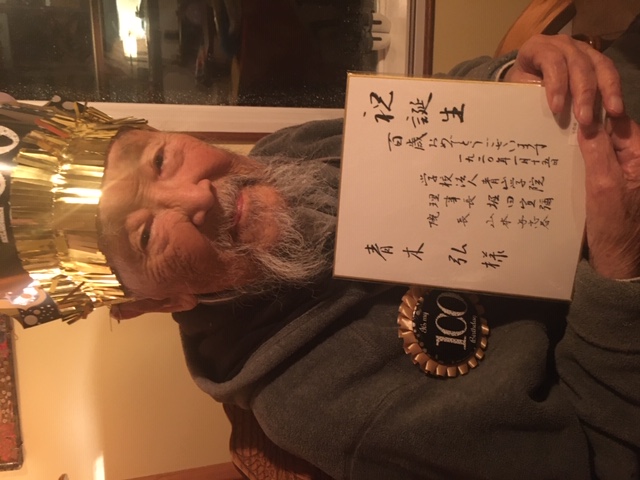 祝誕生
百歳おめでとうございます
一九二〇年一月十五日
学校法人青山学院
理事長 堀田宣彌
院長 山本与志春
青木 弘様
It's my
100
Birthday